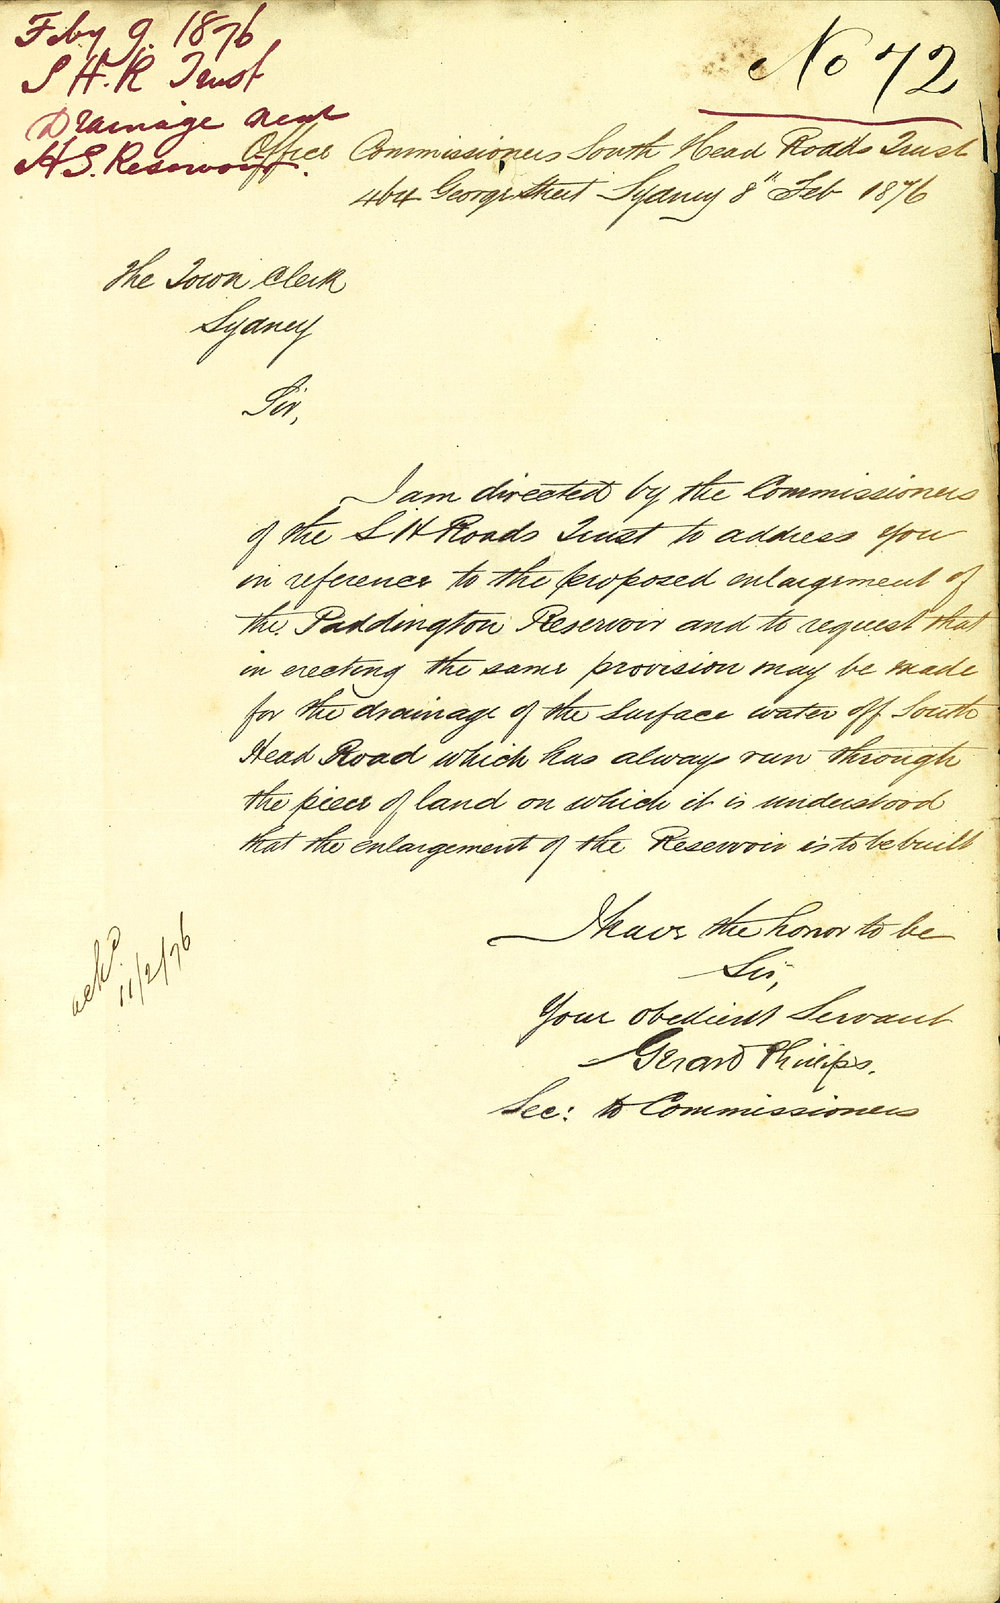 Feby 9. 1876
S H. R Trust
Drainage near
H S. Reservoir.
No 72
Office Commissioners South Head Roads Trust
464 George Street Sydney 8" Feb 1876
The Town Clerk
Sydney
Sir,
I am directed by the Commissioners
of the S H Roads Trust to address you
in reference to the proposed enlargement of
the Paddington Reservoir and to request that
in erecting the same provision may be made
for the drainage of the surface water off South
Head Road which has always run through
the piece of land on which it is understood
that the enlargement of the Reservoir is to be built
I have the honor to be
Sir,
Your obedient Servant
Gerard Phillips.
Sec: to Commissioners
ackd.
11/2/76